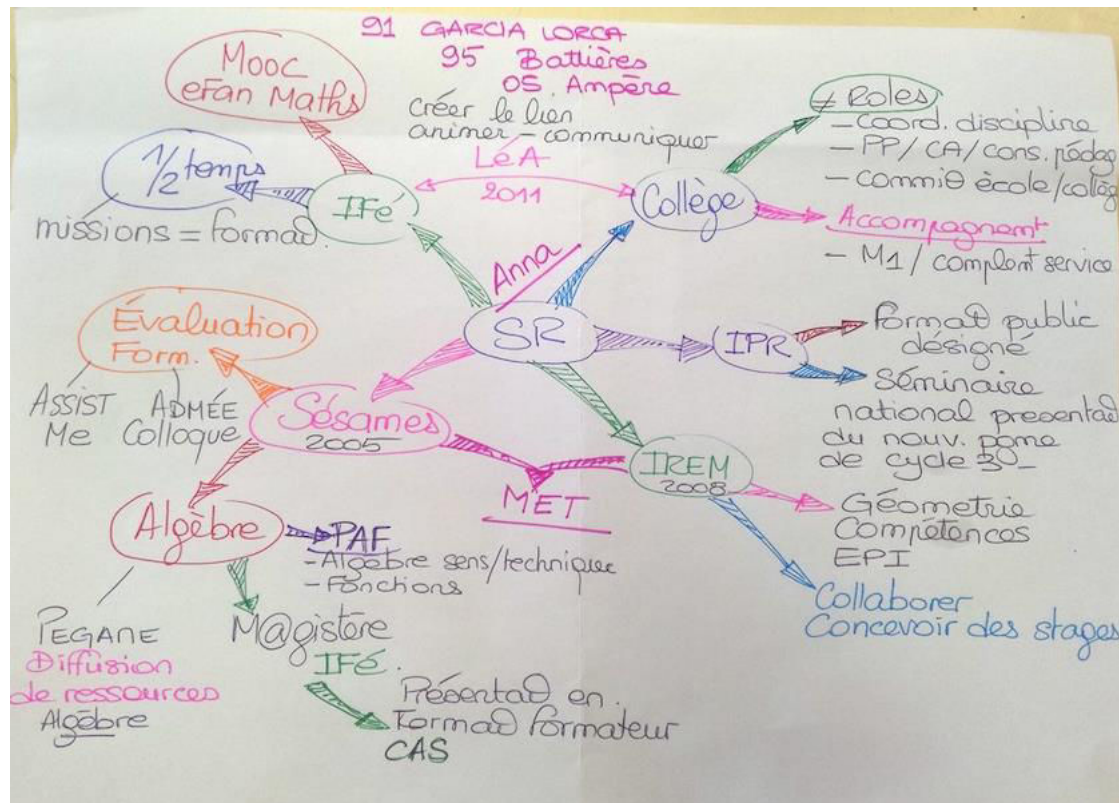 91 GARCIA LORCA
95 Battières
05 Ampère
Mooc
eFan Maths
créer le lien
animer - communiquer
LéA
2011
1/2 temps
missions = Format.
IFé
Collège
≠ Roles
- Coord. discipline
- PP / CA / cons. pédag
- Commiθ école/collèg
Accompagnant
- M1 / complent service
Anna
SR
IPR
Format public
désigné
Séminaire
national presentat
du nouv. pgme
de cycle 3 -
Évaluation
Form.
ASSIST
Me
ADMÉE
Colloque
Sésames
2005
MET
IREM
2008
Géometrie
Compétences
EPI
Collaborer
Concevoir des stages
Algèbre
PAF
- Algèbre sens/technique
- Fonctions
PEGANE
Diffusion
de ressources
Algèbre
M@gistère
IFé.
Présentat en
Format formateur
CAS